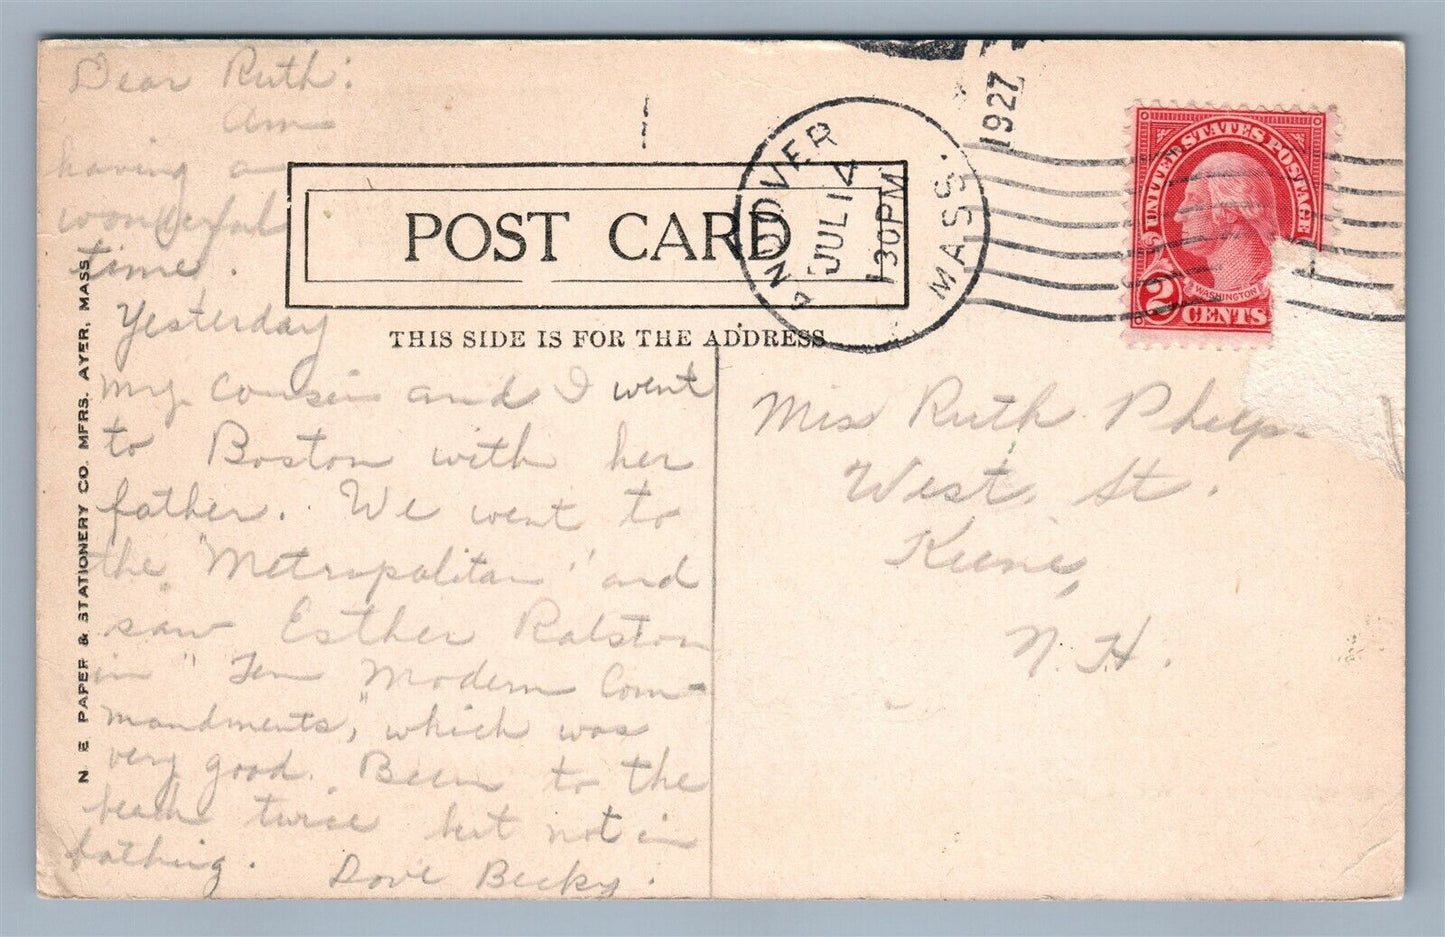 Dear Ruth:
Am
having a
wonderful
time.
Yesterday
my cousin and I went
to Boston with her
father. We went to
the "Metropolitan" and
saw Esther Ralston
in "Ten Modern Com-
mandments," which was
very good. Been to the
beach twice but not in
bathing. Love Becky.
N. E. PAPER & STATIONERY CO. MFRS. AYER, MASS
POST CARD
THIS SIDE IS FOR THE ADDRESS
ANDOVER
JUL 14
130PM
MASS.
1927
UNITED STATES POSTAGE
WASHINGTON
2 CENTS
Miss Ruth Phelps
West St.
Keene,
N. H.